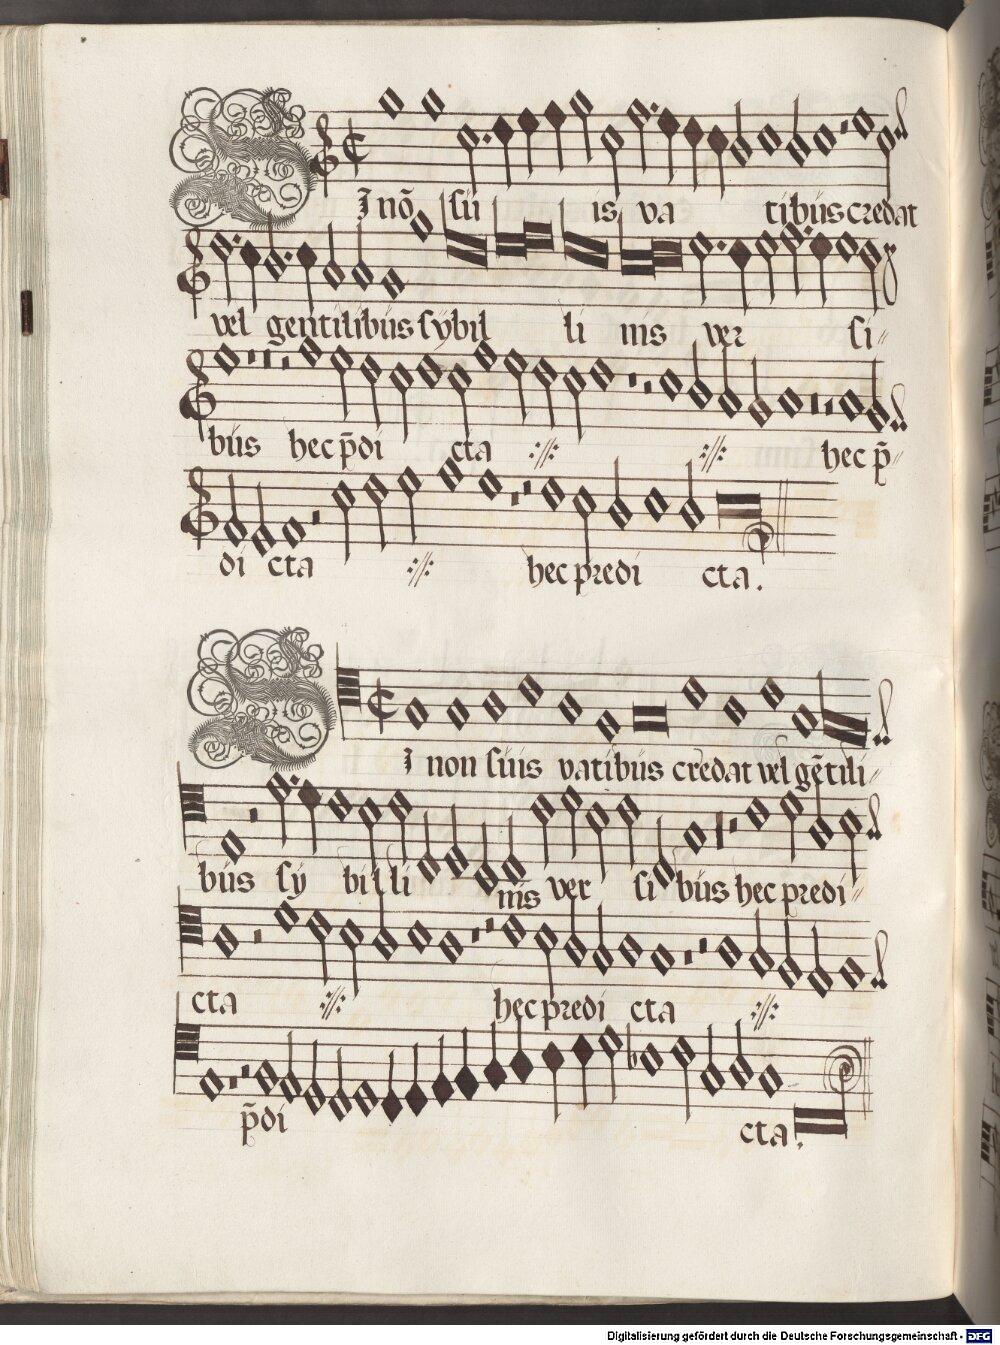 Si nō su is va tibus credat
vel gentilibus sybil li nis ver si
bus hec p̄di cta ://: ://: hec p̄
di cta ://: hec predi cta.
Si non suis vatibus credat vel gētili
bus sy billi nis ver si bus hec predi
cta ://: hec predi cta ://:
p̄di cta.
Digitalisierung gefördert durch die Deutsche Forschungsgemeinschaft - DFG